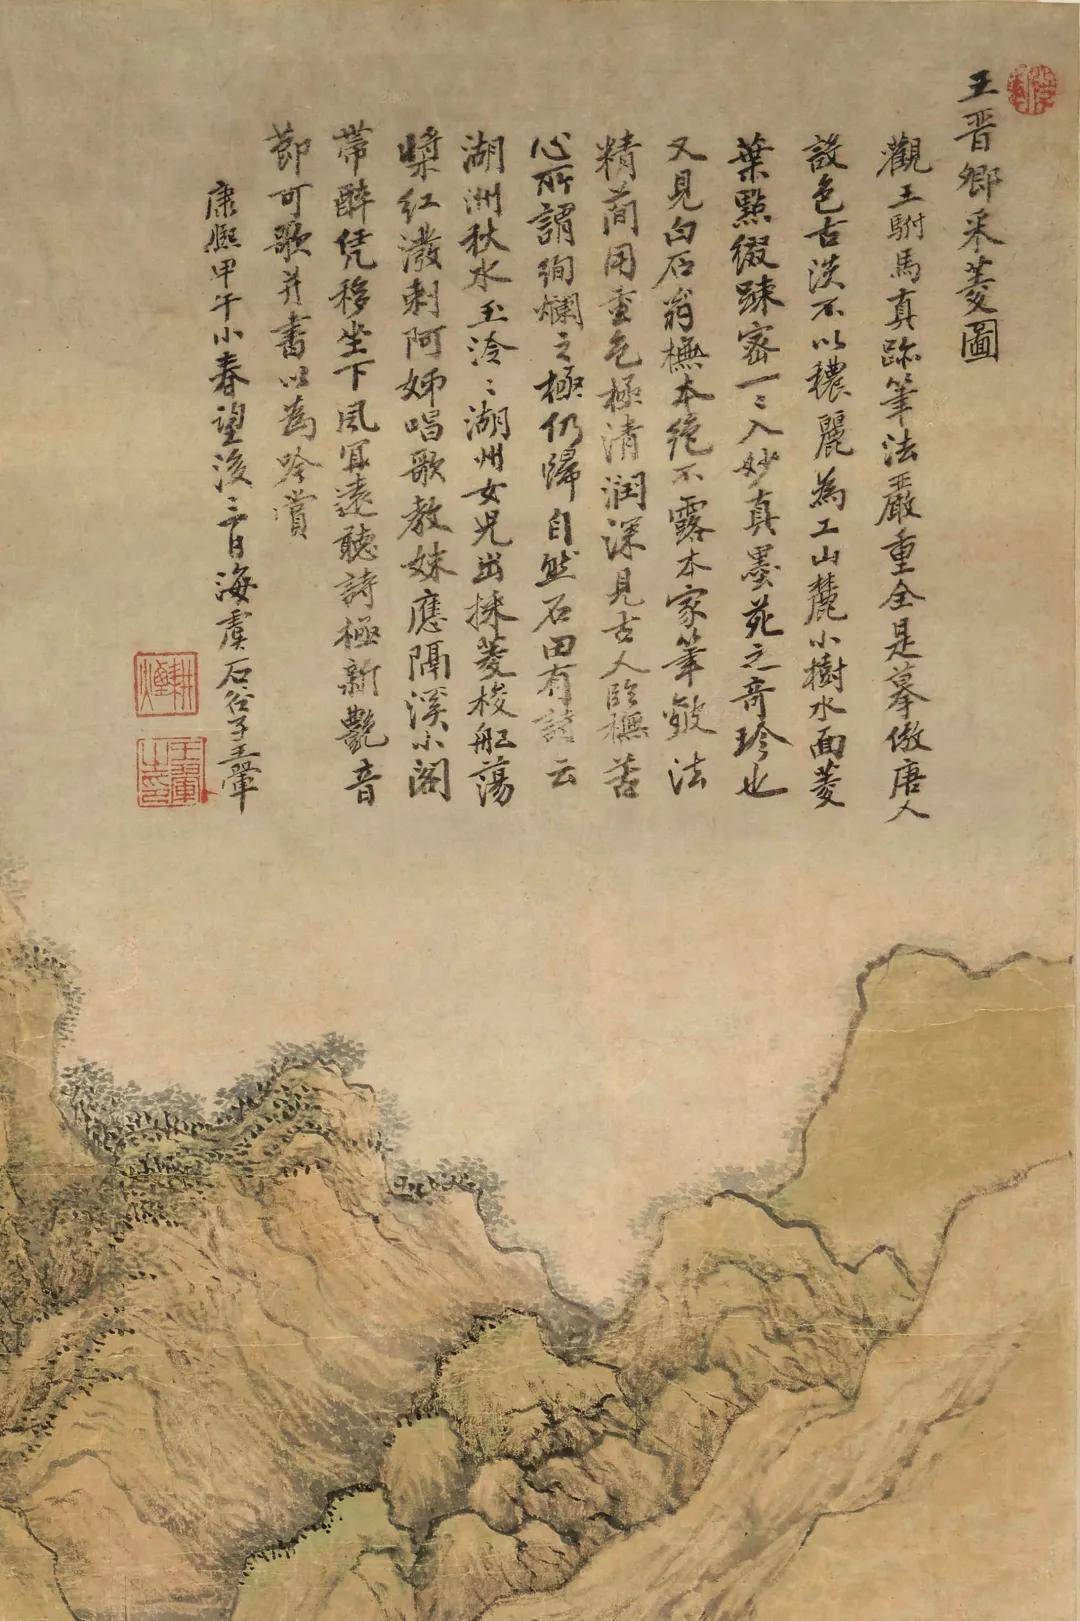 王晋卿采菱圖
觀王駙馬真跡筆法嚴重全是摹倣唐人
設色古淡不以穠麗為工山麓小樹水面菱
葉點綴踈密一〻入妙真墨苑之奇珍也
又見白石翁橅本絕不露本家筆皴法
精簡用重色極清潤深見古人臨橅苦
心所謂絢爛之極仍歸自然石田有詩云
湖洲秋水玉泠〻湖州女兒出採菱梭船蕩
槳紅潑剌阿姊唱歌教妹應隔溪小閣
帶醉凭移坐下風宜遠聽詩極新艷音
節可歌并書以為吟賞
康熙甲午小春望後二日海虞石谷子王翬
耕煙
王翬之印